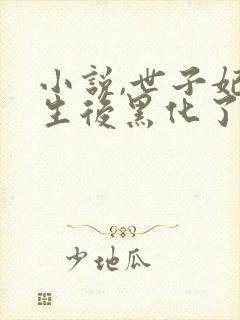 小說,世子妃
生後黑化了
少地瓜